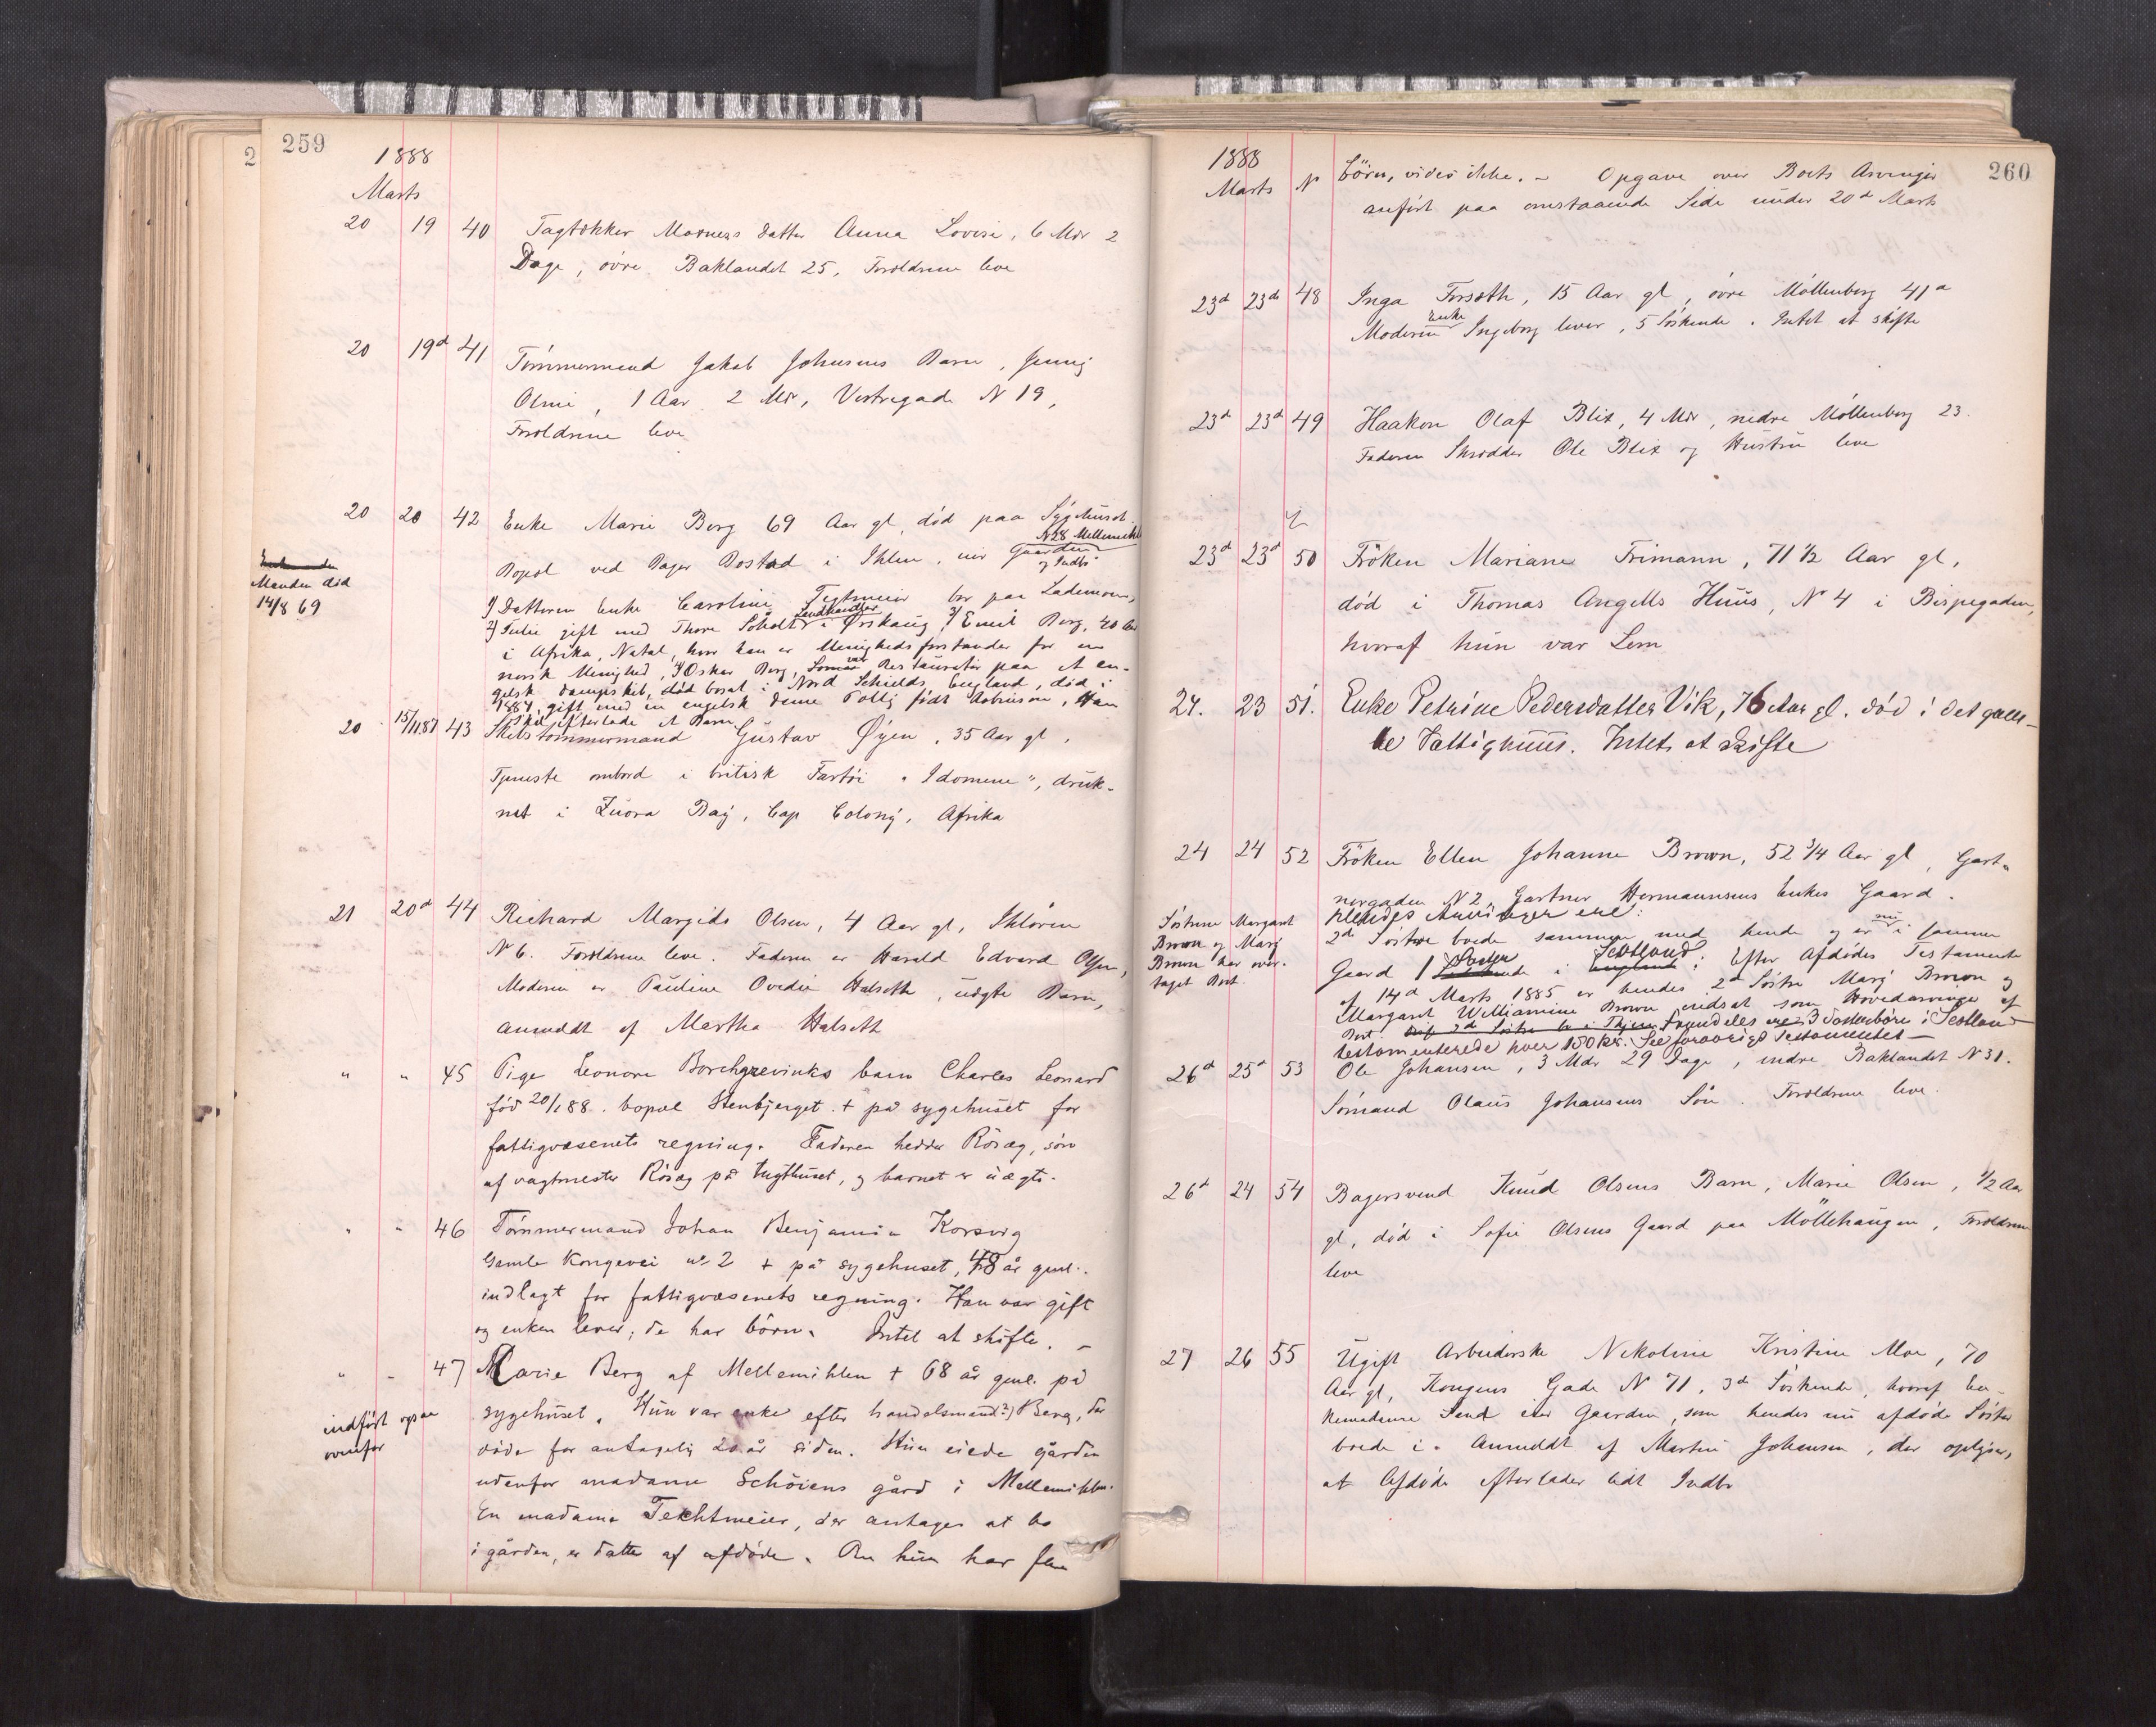 259
1888
Marts
20 19 40 Tagtækker Morness datter Anna Lovise, 6 Mdr 2
Dage, øvre Baklandet 25, Forældrene leve
20 19d 41 Tømmermand Jakob Johnsens Barn, Jenny
Olme, 1 Aar 2 Mdr, Vestregade N 19,
Forældrene leve
20 20 42 Enke Marie Berg 69 Aar gl, död paa Sygehuset.
N28 Mellemihl
Bopæl ved Bager Bostad i Ihlen, eier Gaarden
og Indbo
Manden död
14/8 69
1) Datteren Enke Caroline Tegtmeier bor paa Lademoen,
2) Julie gift med Thore Scholdt Landhandler i Ørskaug, 3) Emil Berg, 40 Aar
i Afrika, Natal, hvor han er Menighedsforstander for en
norsk Menighed, 4) Oskar Berg, Restauratör paa et en-
gelsk dampskib, död bosat i Nord Schields England, död i
1887, gift med en engelsk Dame Polly födt Robinson, Han
skal efterlade et Barn
20 15/11 87 43 Skibstømmermand Gustav Øyen, 35 Aar gl,
Tjeneste ombord i britisk Fartöi "Idomene", druk-
net i Bay, Cap Colony, Afrika
21 20d 44 Richard Margido Olsen, 4 Aar gl, Ihlören
N 6. Forældrene leve. Faderen er Harald Edvard Olsen,
Moderen er Pauline Ovedie Halseth, uægte Barn,
anmeldt af Martha Halseth
" " 45 Pige Leonore Borchgrevinks barn Charles Leonard
föd 20/1 88. bopæl Stenbjerget. + på sygehuset for
fattigvæsenets regning. Faderen hedder Rösæg, sön
af vagtmester Rösæg på tugthuset, og barnet er uægte.
" " 46 Tömmermand Johan Benjamin Korsvig
Gamle Kongevei no 2 + på sygehuset, 48 år gml.
indlagt for fattigvæsenets regning. Han var gift
og enken lever; de har börn. Intet at skifte. -
" " 47 Marie Berg af Mellemihlen + 68 år gml. på
indført ogsaa
ovenfor
sygehuset. Hun var enke efter handelsmand(?) Berg, der
döde for antagelig 20 år siden. Hun eiede gården
udenfor madame Schöiens gård i Mellemihlen.
En madame Tekhtmeier, der antages at bo
i gården, er datter af afdöde. Om hun har flere
260
1888
Marts N Börn, vides ikke. - Opgave over Boets Arvinger
anført paa omstaaende Side under 20de Marts
23d 23de 48 Inga Forseth, 15 Aar gl, övre Möllenberg 41a
Moderen Enke Ingeborg lever, 5 Söskende. Intet at skifte
23d 23d 49 Haakon Olaf Blix, 4 Mdr, nedre Möllenberg 23.
Faderen Skrædder Ole Blix og Hustru leve
23d 23d 50 Fröken Mariane Frimann, 71 1/2 Aar gl,
död i Thomas Angells Huus, No 4 i Bispegaden,
hvoraf hun var Lem
24. 23 51. Enke Petrine Pedersdatter Vik, 76 Aar gl. död i det gam-
le Fattighuus. Intet at skifte
24 24 52 Fröken Ellen Johanne Brown, 52 3/4 Aar gl, Gart-
nergaden N 2, Gartner Hermannsens Enkes Gaard.
Söstrene Margaret
Brown og Mary
Brown har over-
taget Boet.
Hendes Arvinger ere:
2de Söstre boede sammen med hende og er nu i samme
Gaard 1 Söster i Scotland. Efter Afdödes Testamente
af 14de Marts 1885 er hendes 2de Söstre Mary Brown og
Margaret Williamine Brown indsat som Hovedarvinge af
Boet. Fremdeles ere 3 Søsterbörn i Scotland
testamenterede hver 150 kr. See forøvrigt Testamentet -
26d 25d 53 Ole Johansen, 3 Mdr 29 Dage, nedre Baklandet N 31.
Sömand Olaus Johansens Sön. Forældrene leve.
26d 24 54 Bagersvend Knud Olsens Barn, Marie Olsen, 1/2 Aar
gl, död i Sofie Olsens Gaard paa Möllehaugen, Forældrene
leve
27 26 55 Ugift Arbeiderske Nikoline Kristine Moe, 70
Aar gl, Kongens Gade N 71, 3de Söskende, hvoraf
eier Gaarden, som hendes nu afdöde Söster
boede i. Anmeldt af Martin Johansen, der oplyser,
at Afdöde efterlader lidt Indbo